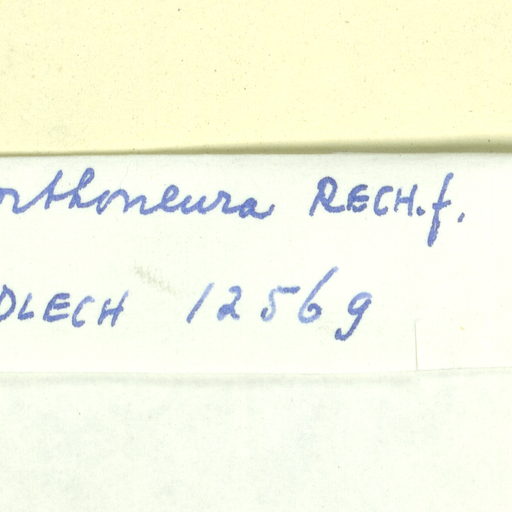 orthoneura RECH.f.
DLECH 12569